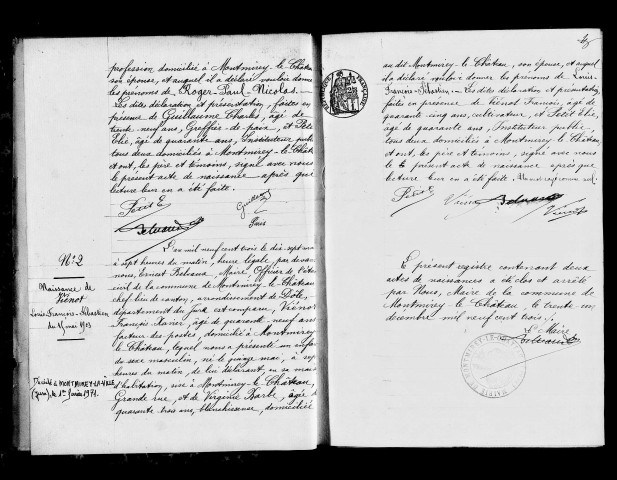 profession domiciliée à Montmirey-le-Château
son épouse, et auquel il a déclaré vouloir donner
les prénoms de Roger-Paul-Nicolas.
Les dites déclaration et présentation, faites en
présence de Guillaume Charles, âgé de
trente neuf ans, Greffier de paix, et Petit
Elie, âgé de quarante ans, Instituteur public
tous deux domiciliés à Montmirey-le-Chât
et ont, les père et témoins, signé avec nous
le présent acte de naissance après que
lecture leur en a été faite.
Petit E
Guillaume
Nº 2
Naissance de
Viénot
Louis, François, Sébastien
du 15 mai 1903
Décédé à MONTMIREY-LA-VILLE
(Jura), le 1er Février 1971.
L'an mil neuf cent trois le dix-sept mai
à sept heures du matin, heure légale, par devant
nous, Ernest Belvaud, Maire, Officier de l'état
civil de la commune de Montmirey-le-Château
chef lieu de canton, arrondissement de Dôle,
département du Jura est comparu, Viénot
François-Xavier, âgé de quarante neuf ans
facteur des postes, domicilié à Montmirey
le-Château, lequel nous a présenté un enfant
du sexe masculin, né le quinze mai, à sept
heures du matin, de lui déclarant, en sa maison
d'habitation, sise à Montmirey-le-Château,
Grande rue, et de Virginie Barbe, âgée de
quarante trois ans, blanchisseuse, domiciliée
au dit Montmirey-le-Château, son épouse, et auquel
il a déclaré vouloir donner les prénoms de Louis-
François-Sébastien. Les dites déclaration et présentation,
faites en présence de Viénot François, âgé de
quarante cinq ans, cultivateur, et Petit Elie,
âgé de quarante ans, Instituteur public,
tous deux domiciliés à Montmirey-le-Château
et ont, les père et témoins, signé avec nous
le présent acte de naissance après que
lecture leur en a été faite.
Petit E Viénot Belvaud
Viénot
Le présent registre contenant deux
actes de naissances a été clos et arrêté
par Nous, Maire de la commune de
Montmirey le Château le trente-un
décembre mil neuf cent trois.
Le Maire,
Belvaud